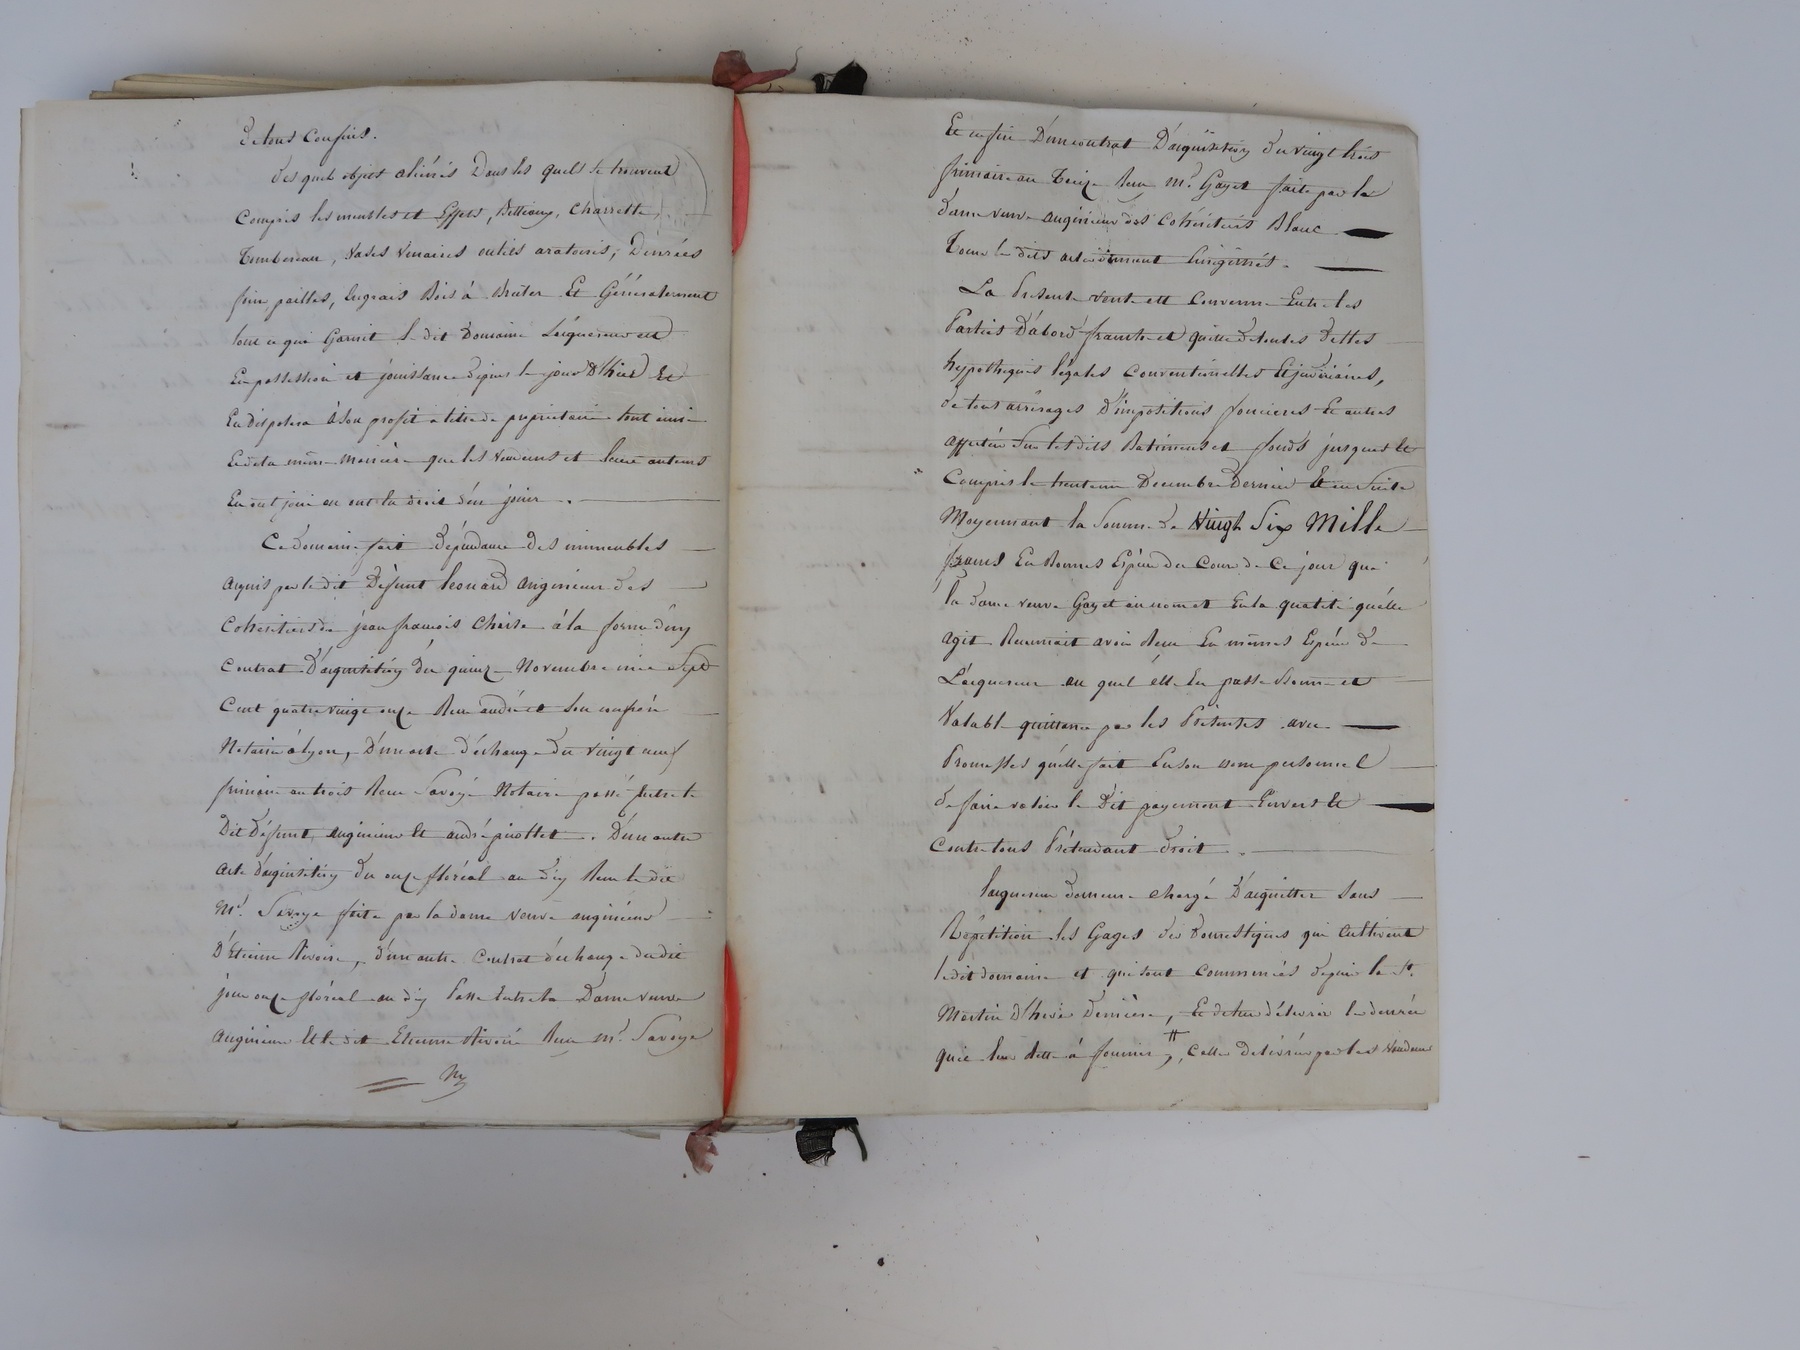 de tous Confins.
des quels objets aliénés Dans les quels se trouvent
Compris les meubles et Effets, Bestiaux, Charrette,
Tombereau, Vases Vinaires outils aratoires, Denrées
foin pailles, Engrais Bois à Bruler Et Généralement
tout ce qui Garnit le dit Domaine L'acquereur est
En possession et jouissance depuis le jour d'hier Et
En disposera à Son profit a titre de proprietaire tout ainsi
Et de la même manière que les Vendeurs et leurs auteurs
En ont joui ou ont eu droit d'en jouir.
Ce Domaine fait Dépendance des immeubles
acquis par le dit Défunt Leonard anginieur des
Cohéritiers de jean françois Chaise à la forme d'un
Contrat D'acquisition du quinze Novembre mil Sept
Cent quatre vingt onze Reçu andré et Son confrère
Notaire à Lyon, D'un acte d'échange du vingt neuf
frimaire an trois Reçu Savoye Notaire passé Entre le
Dit Défunt anginieur Et andré . D'un autre
acte d'acquisition du onze floréal an dix Reçu le dit
Mr. Savoye faite par la dame veuve anginieur
D'Etienne Rivoire, d'un autre Contrat d'échange du dit
jour onze floréal an dix Passé Entre la Dame veuve
anginieur Et le dit Etienne Rivoire Reçu Mr. Savoye
Et enfin D'un contrat D'acquisition du vingt trois
frimaire an Treize Reçu Mr. Gayet faite par la
dame veuve anginieur des Cohéritiers Blanc
Tous les dits actes dument Enrégitrés.
La Présente vente est Convenue Entre les
Parties D'abord franche et quitte de toutes Dettes
hypotheques légales Conventionelles Et judiciaires,
de tous arrérages D'impositions foncieres Et autres
affectées Sur les dits Batiments et fonds jusques Et
Compris le trente un Decembre Dernier Et en Suite
Moyennant la Somme de Vingt Six Mille
francs En Bonnes Espèces du Cour de Ce jour que
la dame veuve Gayet au nom et En la qualité qu'elle
agit Reconnait avoir Reçu En mêmes Espèces de
L'acquereur au quel elle En passe Bonne et
Valable quittance par les Présentes avec
Promesses qu'elle fait En son nom personnel
de faire valoir le Dit payement Envers Et
Contre tous Prétendant droit.
l'acquereur demeure chargé D'acquitter Sans
Répetition les Gages des Domestiques qui Cultivent
le dit domaine et qui sont commencés depuis la St.
Martin d'hiver Dernière, Et de leur délivrer la denrée
qui leur Reste à fournir, Celle delivrée par les Vendeurs